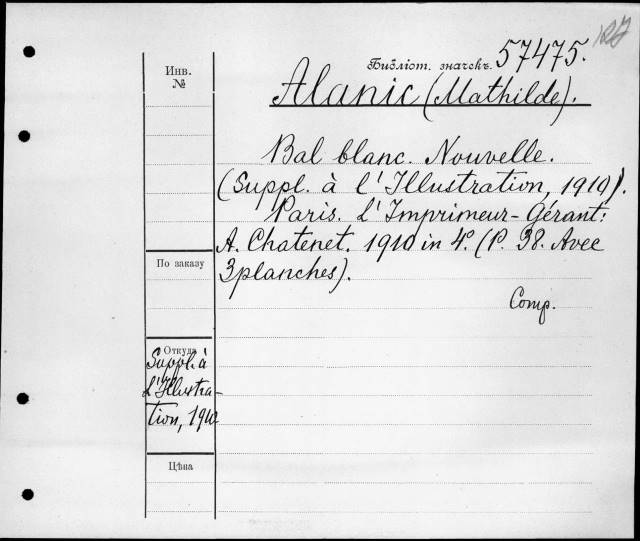 Инв.
№
Библіот. значекъ. 57475.
Alanic (Mathilde).
Bal blanc. Nouvelle.
(Suppl. à l'Illustration, 1910).
Paris. L'Imprimeur-Gérant:
A. Chatenet. 1910 in 4º. (P. 38. Avec
3 planches).
Comp.
По заказу
Откуда
Suppl. à
l'Illustra-
tion, 1910
Цѣна